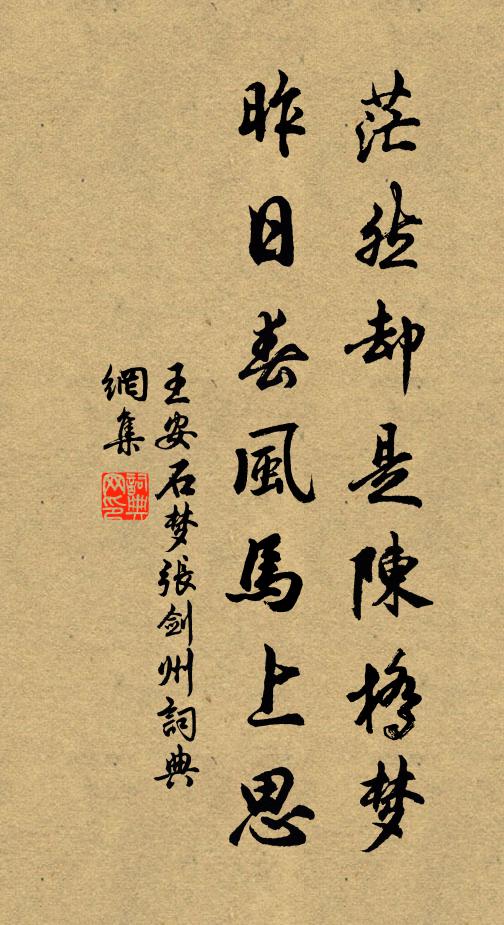 茫然却是陳橋梦
昨日春風馬上思
王安石梦張劍州詞典
網集
詞典网印